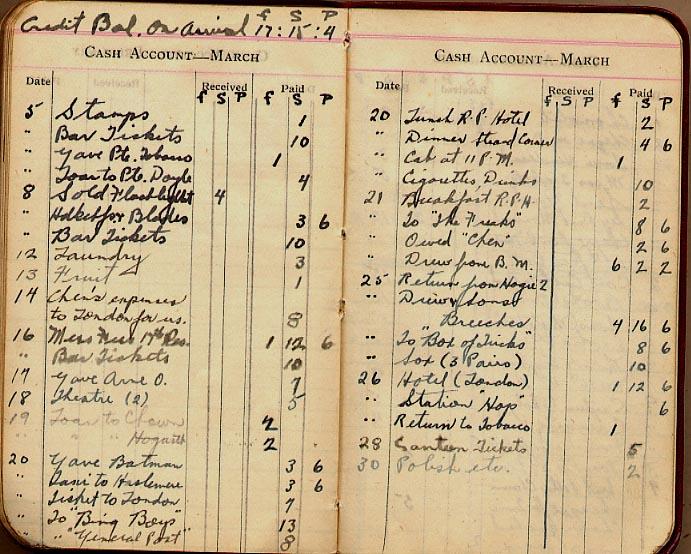 Credit Bal. on Arrival £ S P 17:15:4
CASH ACCOUNT—MARCH
Date Received Paid
£ S P £ S P
5 Stamps 1
" Bar Tickets 10
" Gave Pte. Tobacco 1
" Loan to Pte. Doyle 4
8 Sold Flashlight 4
" for Blades 3 6
" Bar Tickets 10
12 Laundry 3
13 Fruit 1
14 Chen's expenses
to London for us. 8
16 Mess 17th Res. 1 12 6
" Bar Tickets 10
17 Gave O. 7
18 Theatre (2) 5
19 Loan to 2
" " Hogarth 2
20 Gave Batman 3 6
" Taxi to Haslemere 3 6
" Ticket to London 7
" To "Bing Boys" 13
" " "General Post" 8
CASH ACCOUNT—MARCH
Date Received Paid
£ S P £ S P
20 Lunch R.P. Hotel 2
" Dinner Strand Corner 4 6
" Cab at 11 P.M. 1
" Cigarettes Drinks 10
21 Breakfast R.P.H. 2
" To "The Freaks" 8 6
" Owed "Chen" 2 6
" Drew from B. M. 6 2 2
25 Return from Hogie 2
" Drew & Sons
" Breeches 4 16 6
" To "Box of Tricks" 8 6
" Sox (3 Pairs) 10
26 Hotel (London) 1 12 6
" Station "Hop" 6
" Return to Tobacco 1
28 Canteen Tickets 5
30 Polish etc. 2